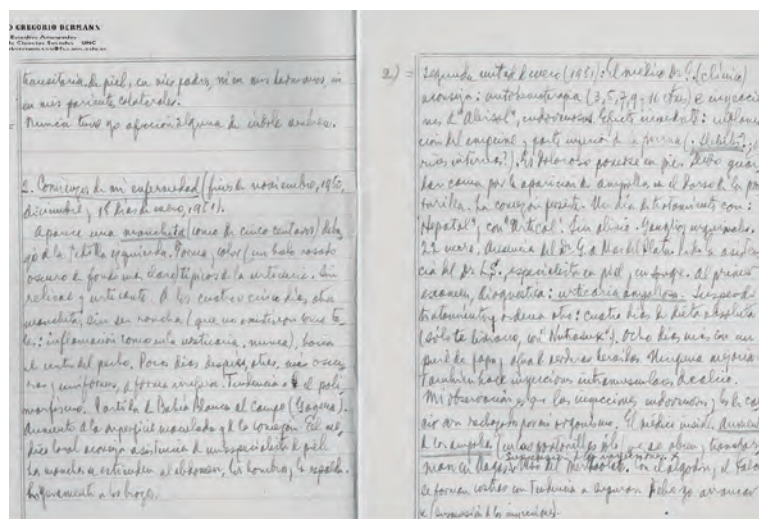 O GREGORIO BERMANN
Estudios Avanzados
de Ciencias Sociales UNC
transitoria de piel, en mis padres, ni en mis hermanos, ni
en mis parientes colaterales.
Nunca tuve yo afección alguna de índole
2. Comienzos de mi enfermedad (fines de noviembre, 1950,
diciembre, y 15 días de enero, 1951).
Aparece una manchita (como de cinco centavos) deba
jo de la tetilla izquierda. Forma, color (un halo rosado
oscuro de fondo más claro) típicos de la urticaria. Sin
relieve y urticante. A los cuatro o cinco días, otra
manchita, sin ser roncha (que no existieron como ta
les: inflamación como en la urticaria, nunca), hacia
el centro del pecho. Pocos días después, otras, más oscu
ras y uniformes, de forma irregular. Tendencia al poli
morfismo. Partida de Bahía Blanca al campo
Aumento de la superficie maculada y de la comezón. El mé
dico local aconseja asistencia de un especialista de piel
La mancha se extiende al abdomen, los hombros, la espalda.
ligeramente a los brazos.
2) = Segunda mitad de enero (1951): El médico Dr. G. (clínico)
aconseja: autohemoterapia (3, 5, 7, 9 - 11 ctms) e inyeccio
nes de endovenosas. Efecto inmediato: inflama
ción del empeine y parte inferior de la pierna
internas?). Es doloroso ponerse en pie. Debo guar
dar cama por la aparición de ampollas en el dorso de la pan
torrilla. La comezón persiste. Un día de tratamiento con:
"Hepatal", con Sin alivio. Ganglios inguinales.
22 enero. Ausencia del Dr. G. a Mar del Plata. asisten
cia del Dr. L.S., especialista en piel, Al primer
examen, diagnostica: urticaria ampollosa. Suspende
tratamiento y ordena otro: cuatro días de dieta absoluta
(sólo té liviano, con Ocho días más con un
puré de papa, y verduras hervidas. Ninguna mejoría
También hace inyecciones intramusculares de calcio.
Mi observación es que las inyecciones endovenosas y las de cal
cio son rechazadas por mi organismo. El médico insiste. Aumen
tan las ampollas (en las pantorrillas sólo), que se abren y transfor
man en llagas. Con el algodón, y talco
se forman costras con tendencia a Debo yo arrancar
x (supresión de las inyecciones).